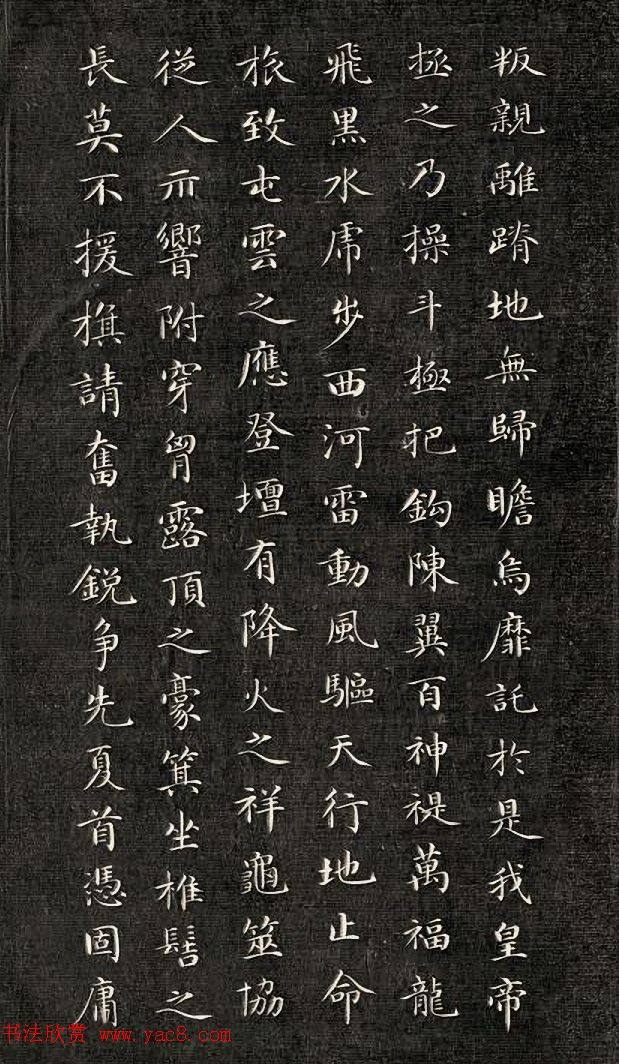 叛親離蹐地無歸瞻烏靡託於是我皇帝
拯之乃操斗極把鈎陳翼百神禔萬福龍
飛黑水虎步西河雷動風驅天行地止命
旅致屯雲之應登壇有降火之祥龜筮協
從人祇響附穿胷露頂之豪箕坐椎髻之
長莫不援旗請奮執鋭争先夏首憑固庸
书法欣赏 www.yac8.com